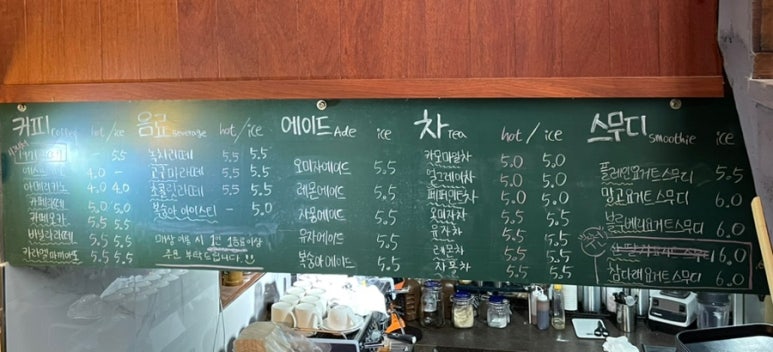 커피 Coffee hot / ice
- 5.5
에스프레소 4.0 -
아메리카노 4.0 4.0
카페라떼 5.0 5.0
카페모카 5.5 5.5
바닐라라떼 5.5 5.5
카라멜마끼아또 5.5 5.5
음료 Beverage hot / ice
녹차라떼 5.5 5.5
고구마라떼 5.5 5.5
초콜릿라떼 5.5 5.5
복숭아 아이스티 - 5.0
매장 이용 시 1인 1음료 이상
주문 부탁드립니다.
에이드 Ade ice
오미자에이드 5.5
레몬에이드 5.5
자몽에이드 5.5
유자에이드 5.5
복숭아에이드 5.5
차 Tea hot / ice
카모마일차 5.0 5.0
얼그레이차 5.0 5.0
페퍼민트차 5.0 5.0
오미자차 5.5 5.5
유자차 5.5 5.5
레몬차 5.5 5.5
자몽차 5.5 5.5
스무디 smoothie ice
플레인요거트스무디 5.5
망고요거트스무디 6.0
블루베리요거트스무디 6.0
6.0
참다래요거트스무디 6.0